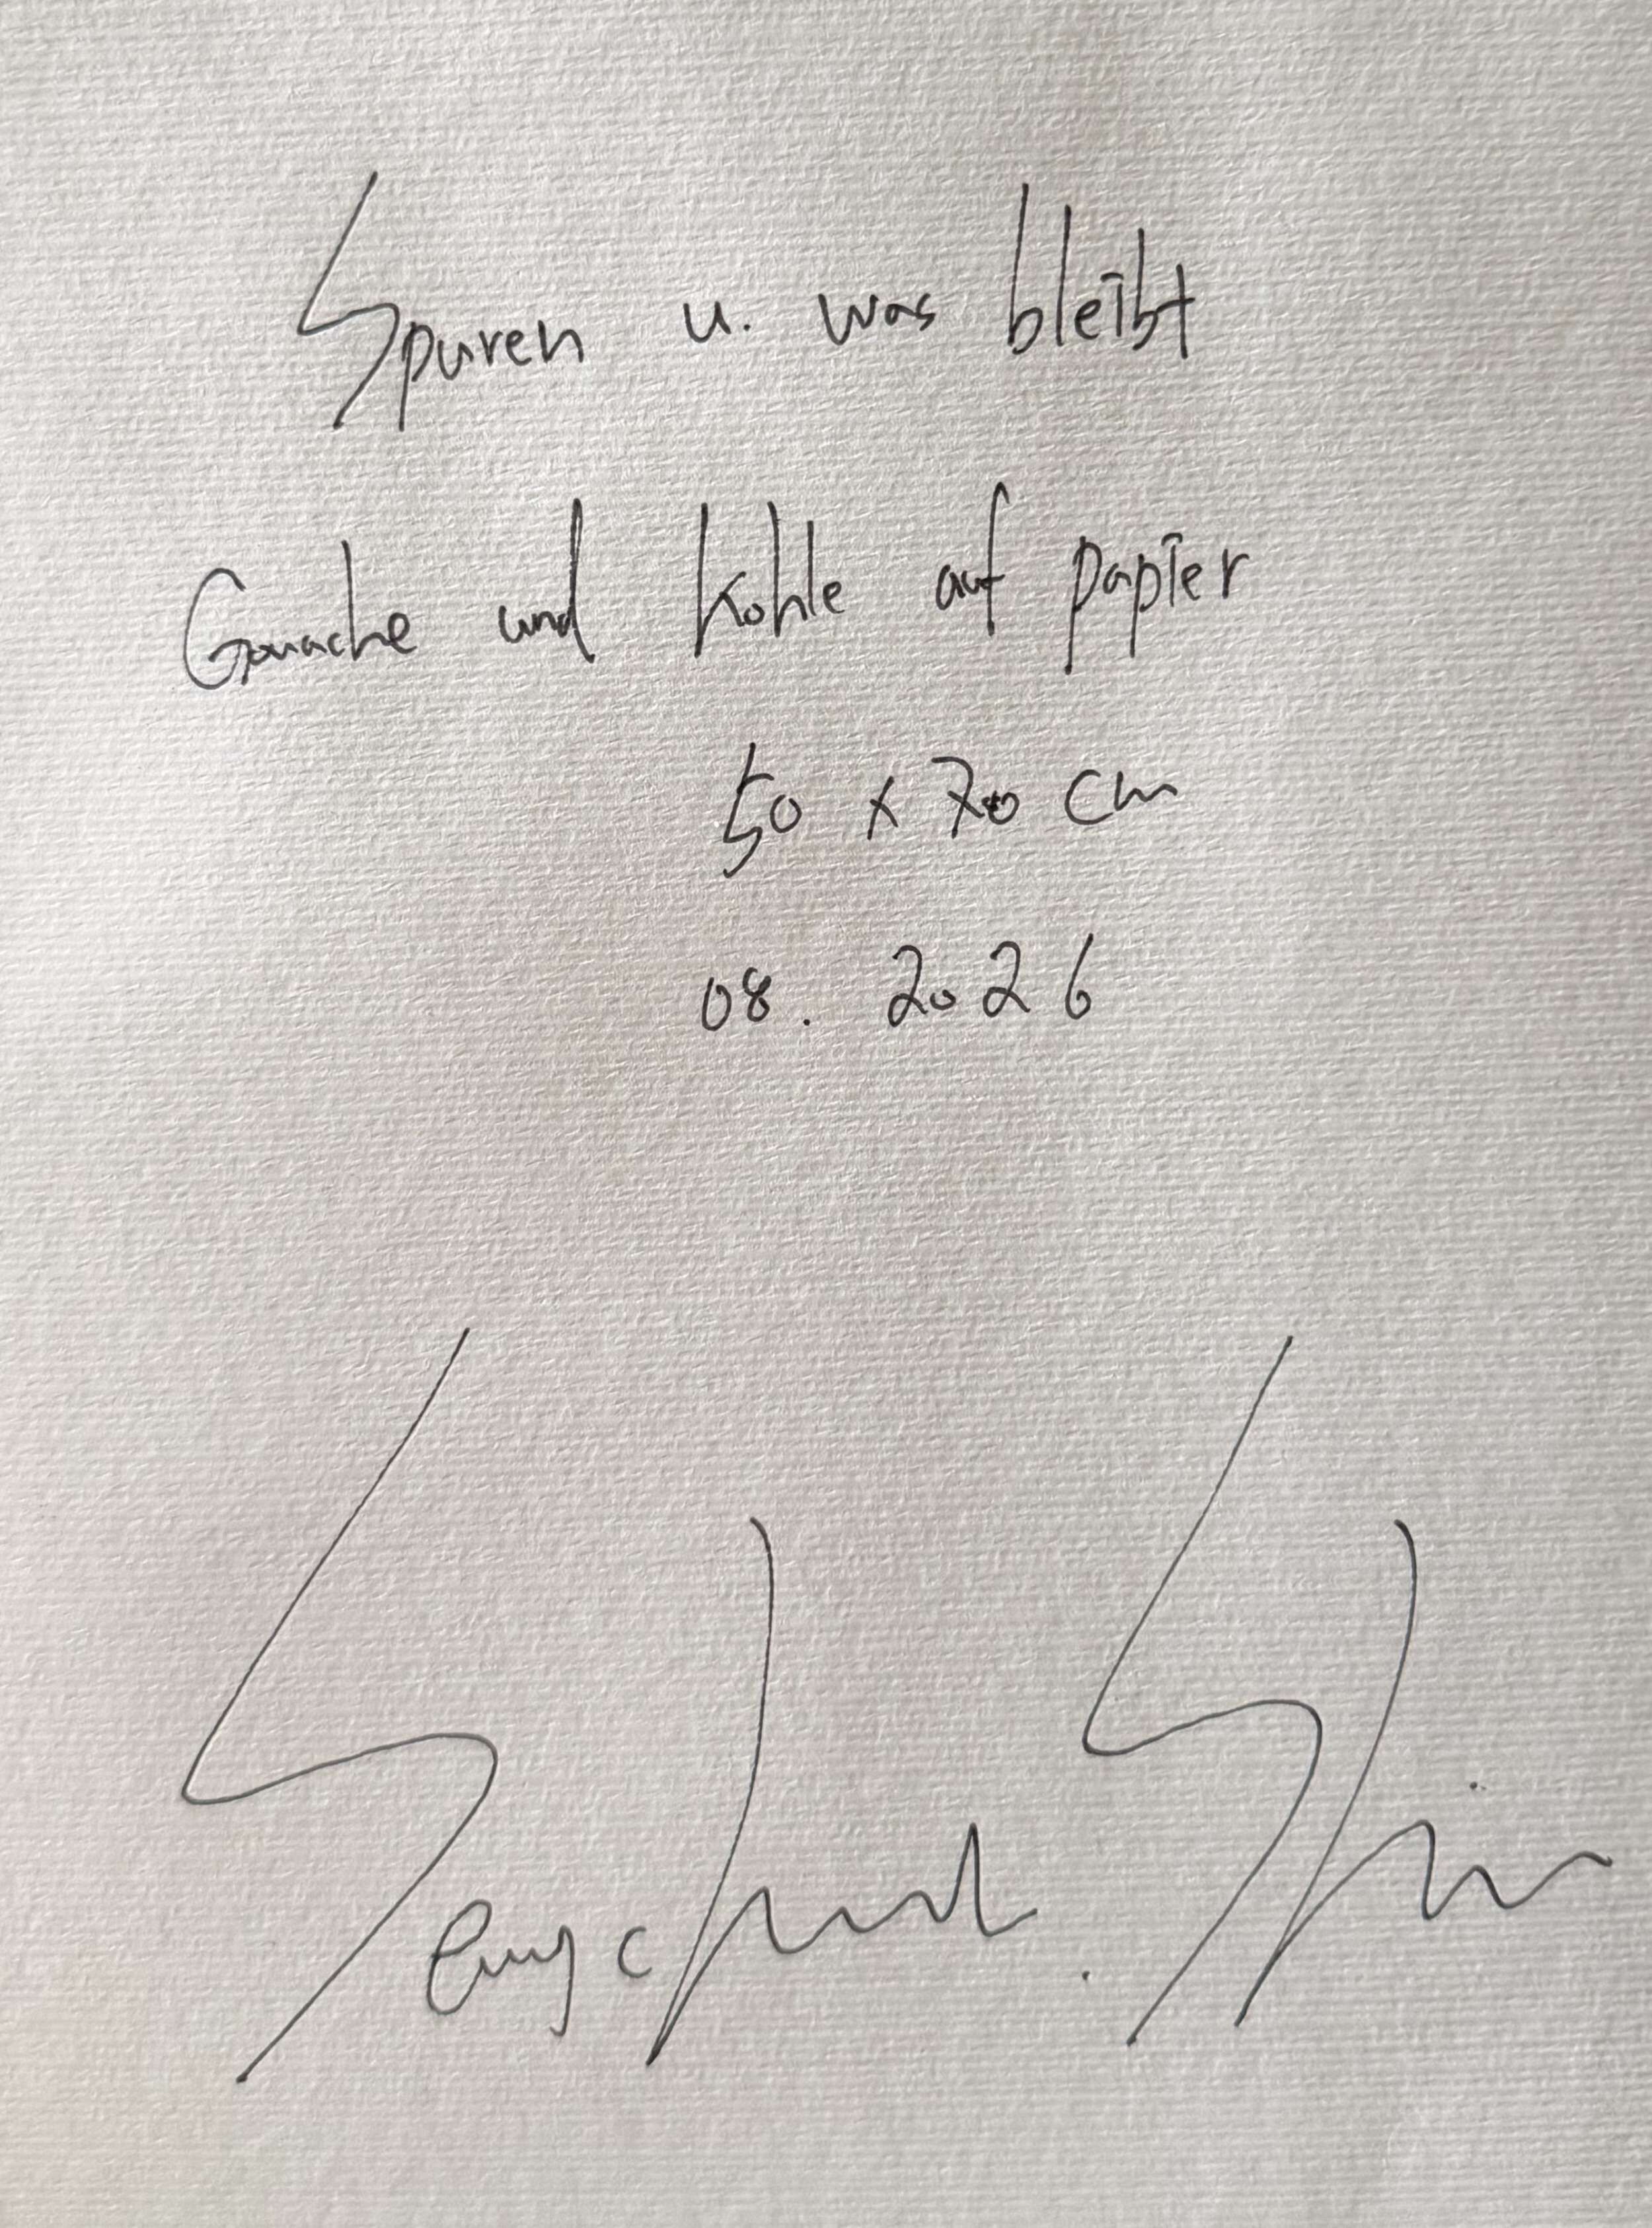 Spuren u. was bleibt
Gouache und Kohle auf papier
50 x 70 cm
08. 2026
Shin